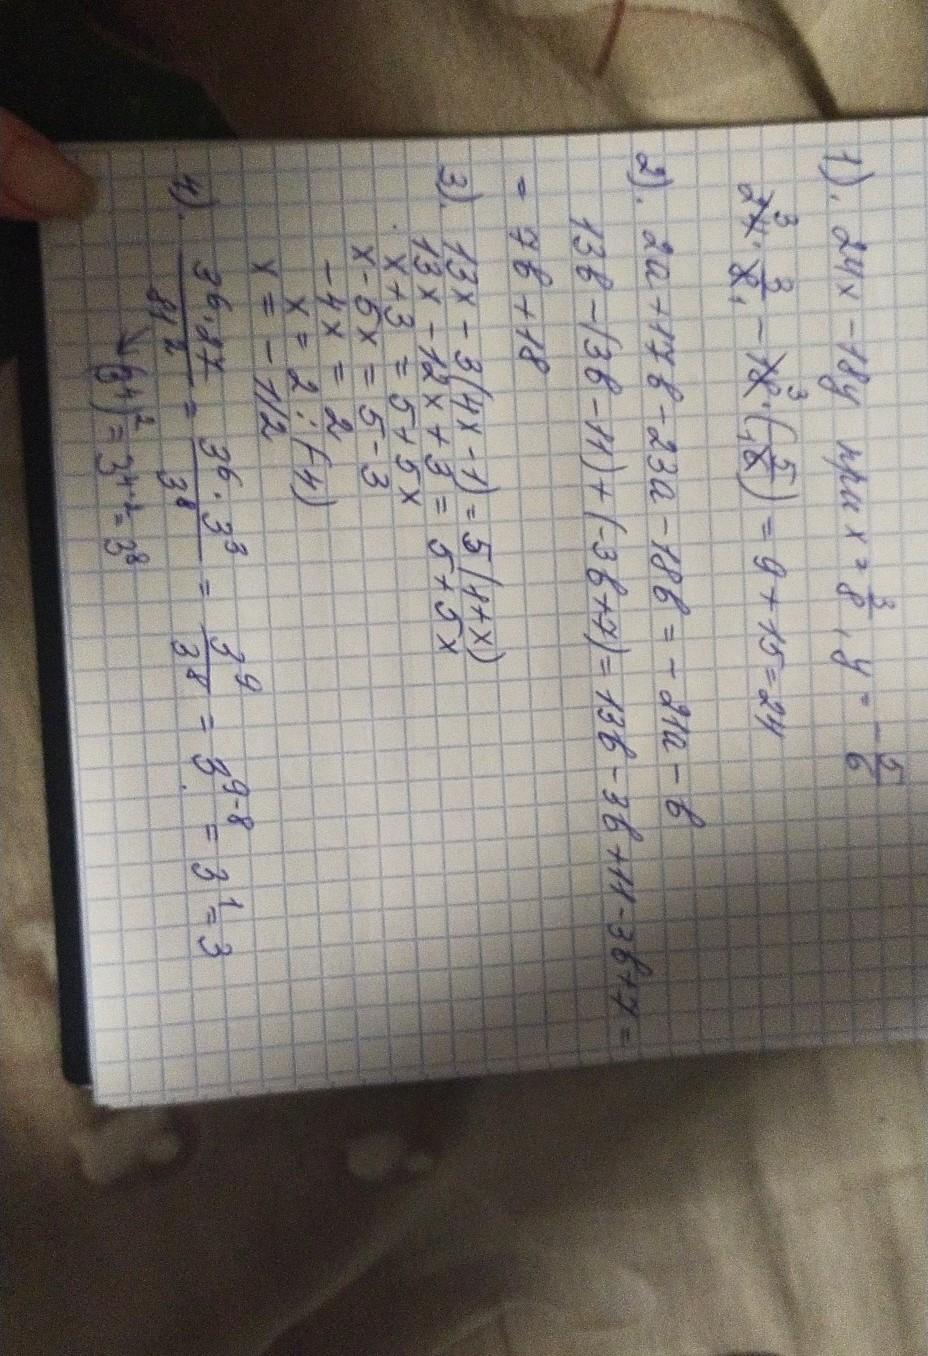 1). 24x - 18y при x = 3/8, y = -5/6
24 · 3/8 - 18 · (-5/6) = 9 + 15 = 24
2). 2a + 17b - 23a - 18b = - 21a - b
13b - (3b - 11) + (-3b + 7) = 13b - 3b + 11 - 3b + 7 =
= 7b + 18
3). 13x - 3(4x - 1) = 5(1+x)
13x - 12x + 3 = 5 + 5x
x + 3 = 5 + 5x
x - 5x = 5 - 3
- 4x = 2
x = 2 : (-4)
x = - 1/2
4). 3⁶ · 27 / 81² = 3⁶ · 3³ / 3⁸ = 3⁹ / 3⁸ = 3⁹⁻⁸ = 3¹ = 3
(3⁴)² = 3⁴·² = 3⁸